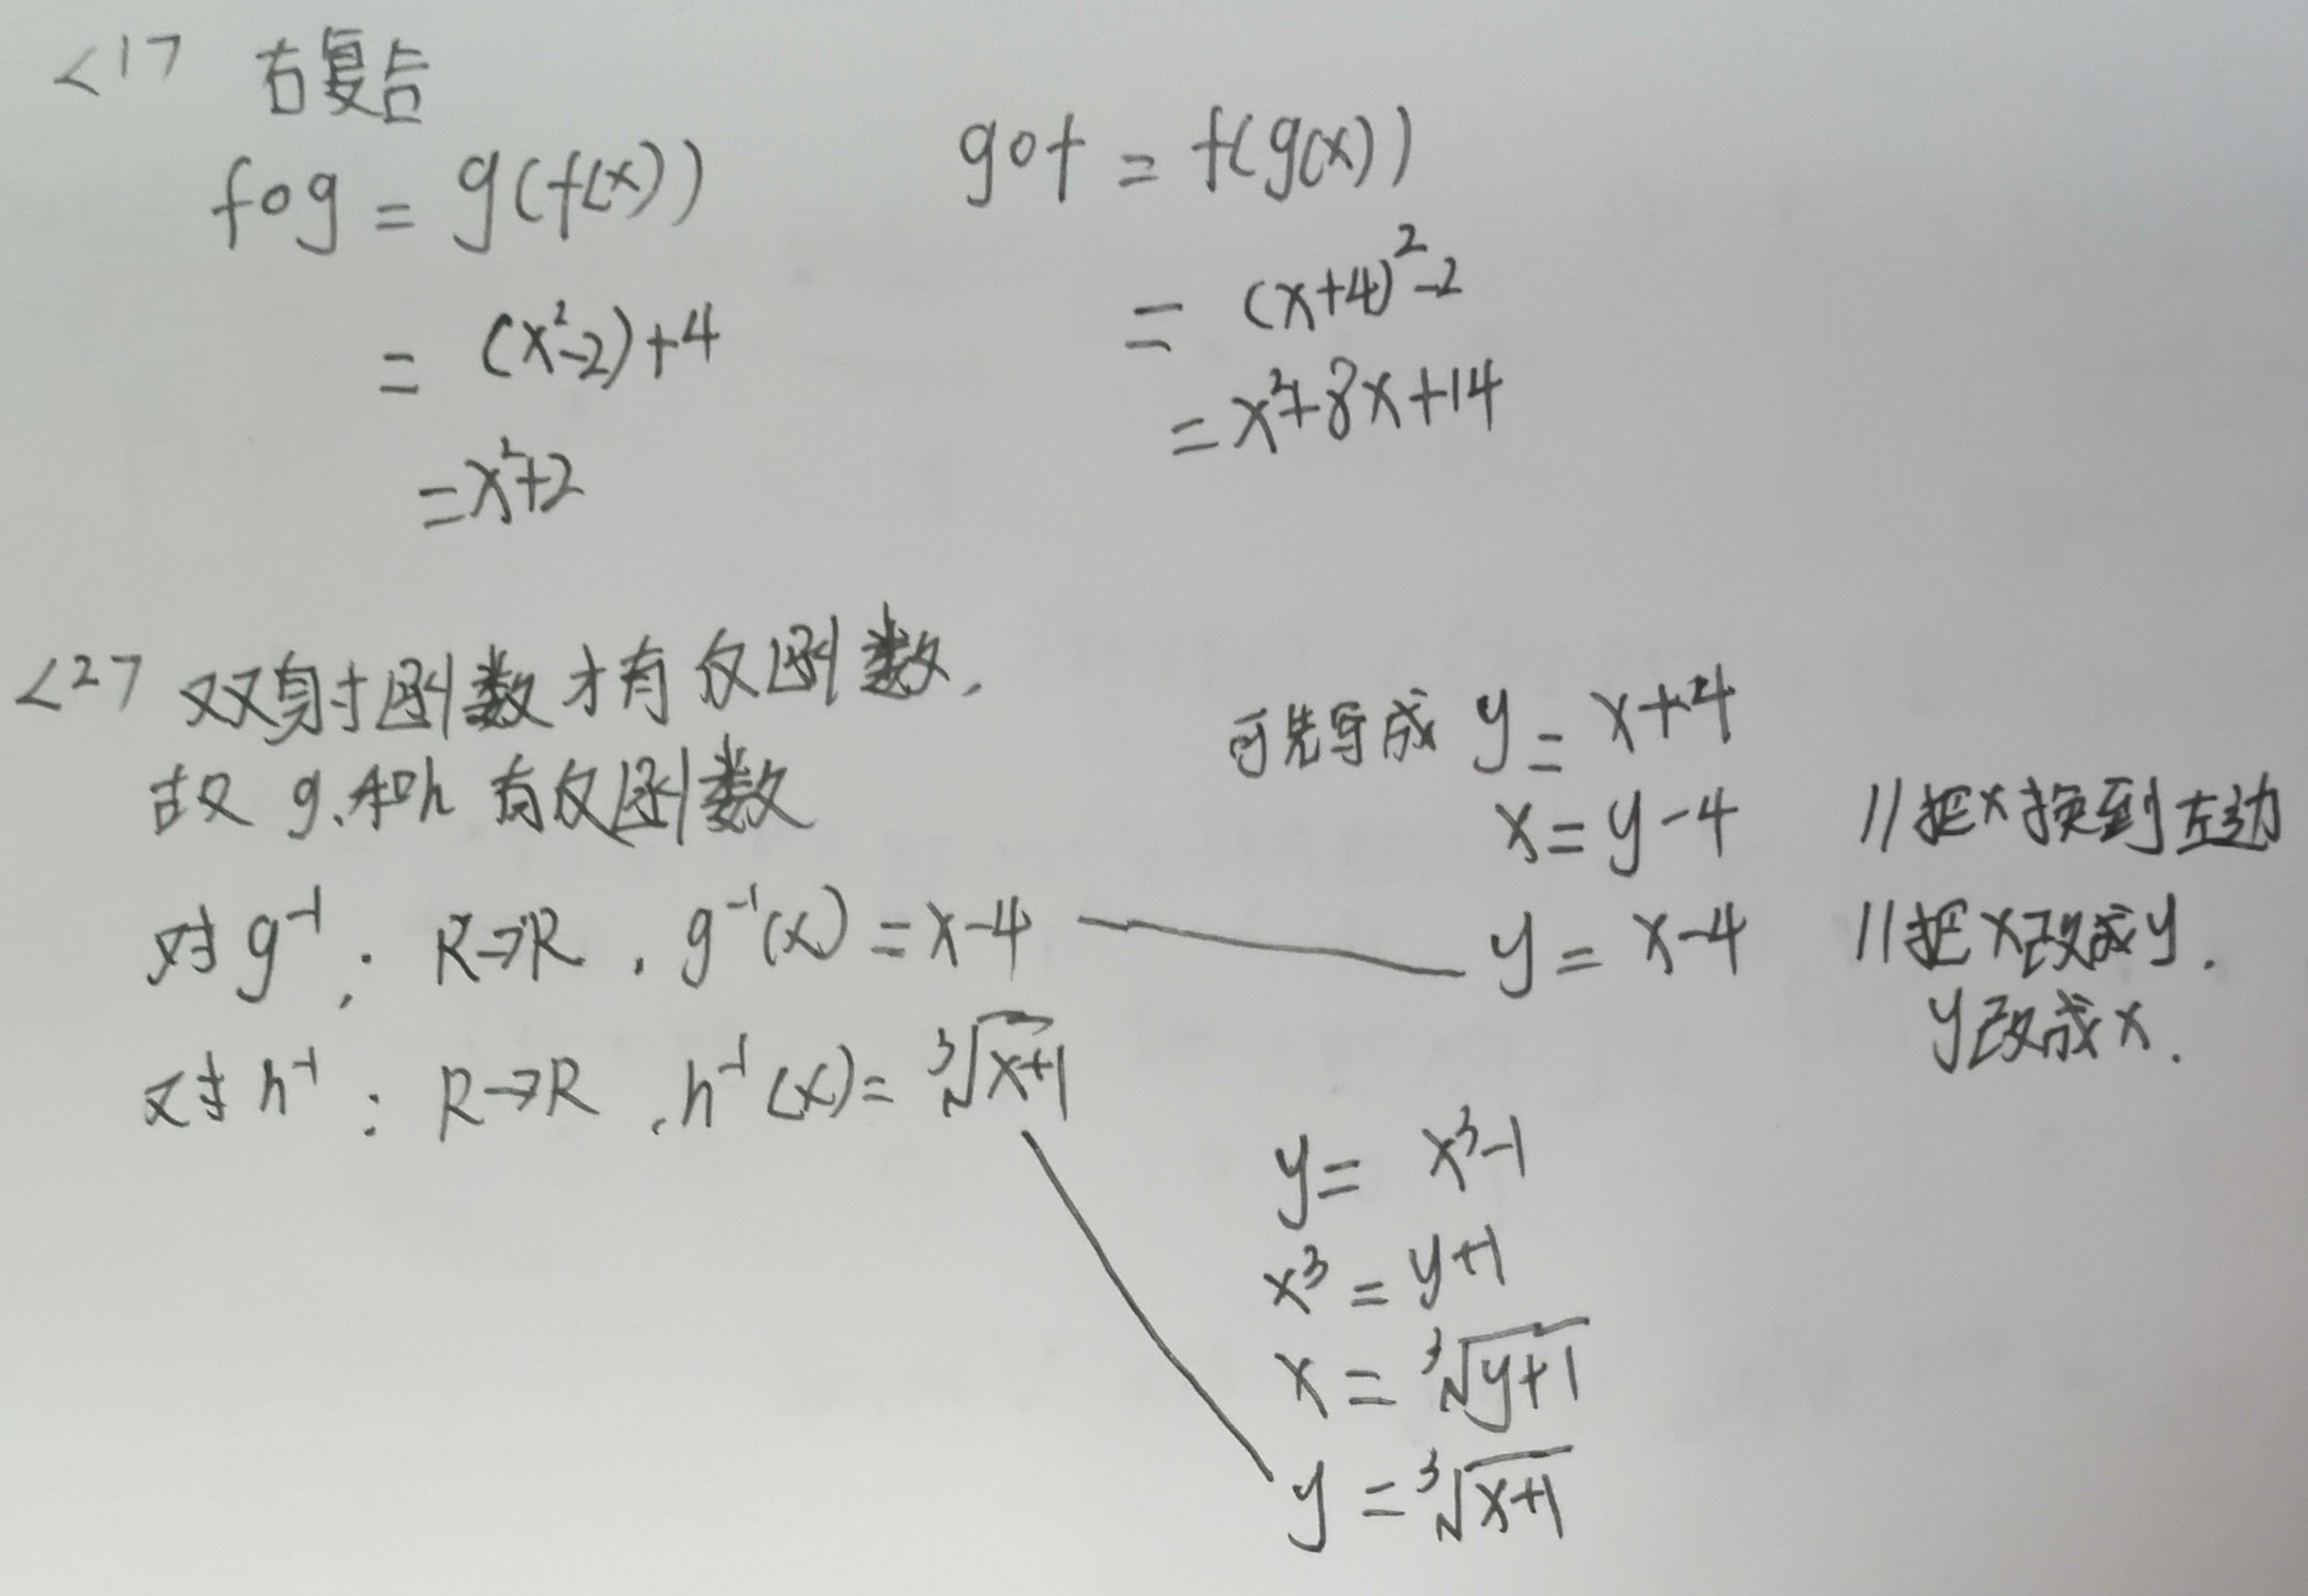 <1> 右复合
fog = g(f(x))
= (x²-2)+4
= x²+2
gof = f(g(x))
= (x+4)²-2
= x²+8x+14
<2> 双射函数才有反函数,
故 g.和h 有反函数
对 g⁻¹: R→R , g⁻¹(x) = x-4
对 h⁻¹: R→R , h⁻¹(x) = ³√(x+1)
可先写成 y = x+4
x = y-4 //把x换到左边
y = x-4 //把x改成y.
y改成x.
y = x³-1
x³ = y+1
x = ³√(y+1)
y = ³√(x+1)